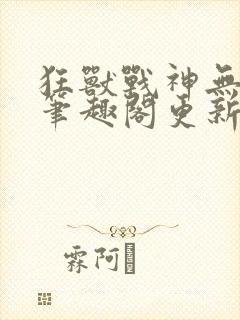 狂獸戰神無
筆趣閣更新
霖阿